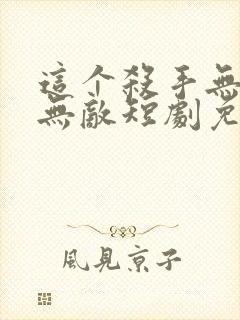 這个殺手無
無敵短劇免
風見京子